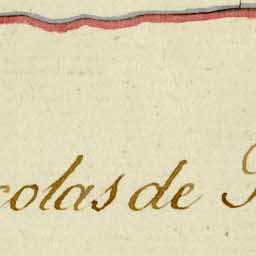 colas de